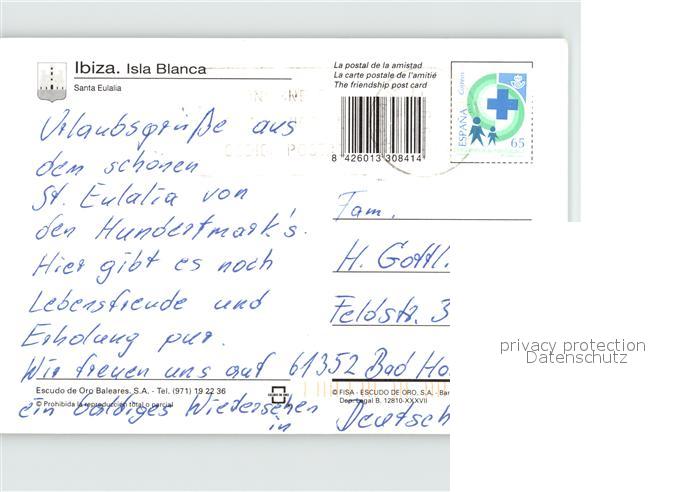 Ibiza. Isla Blanca
Santa Eulalia
La postal de la amistad
La carte postale de l'amitié
The friendship post card
8 426013 308414
Correos
ESPAÑA
65
Urlaubsgrüße aus
dem schönen
St. Eulalia von
den Hundertmark's.
Hier gibt es noch
Lebensfreude und
Erholung pur.
Wir freuen uns auf
ein baldiges Wiedersehen
in
Fam.
H. Gottl.
Feldstr. 3
61352 Bad Ho
Deutsch
Escudo de Oro Baleares, S.A. - Tel. (971) 19 22 36
© Prohibida la reproducción total o parcial
© FISA - ESCUDO DE ORO, S.A. - Bar
Dep. Legal B. 12810-XXXVII
privacy protection
Datenschutz